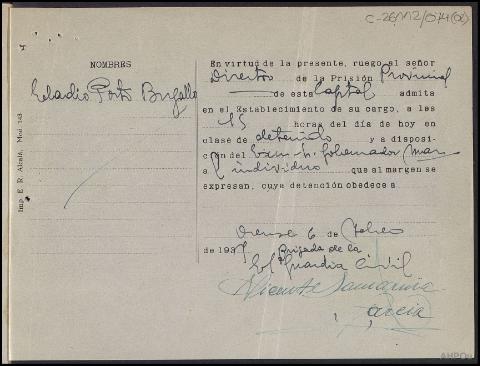 C-26112/074(02)
NOMBRES
Eladio Porto Brugallo
Imp. E. R. Alcalá, Mod. 143
En virtud de la presente, ruego al señor
Director de la Prisión Provincial
de esta Capital admita
en el Establecimiento de su cargo, a las
15 horas del día de hoy en
clase de detenido y a disposi-
ción del Gobernador
individuo que al margen se
expresan, cuya detención obedece a
Orense 6 de Febrero
de 1937
El Brigada de la
Guardia Civil
Vicente
Garcia
AHPOu